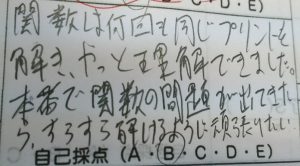 B・C・D・E)
関数は何回も同じプリントを
解き、やっと理解できました。
本番で関数の問題が出てきた
ら、すらすら解けるように頑張りたい!
自己採点 (A・B・C・D・E)